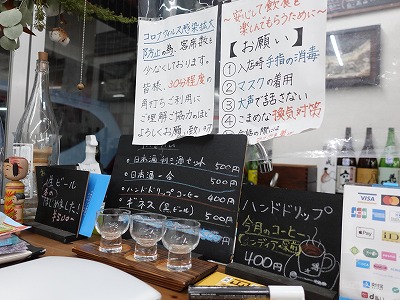 コロナウィルス感染拡大
防止の為、客席数を
少なくしております。
皆様、30分程度の
ご利用に
ご理解ご協力のほど
よろしくお願い致します
～安心して歓談を
楽しんでもらうために～
【お願い】
① 入店時手指の消毒
② マスクの着用
③ 大声で話さない
④ こまめな換気対策
日本酒利き酒セット 500円
日本酒一合 500円
ハンドドリップコーヒー 400円
ギネス(黒ビール) 500円
生ビール
はじめました!
ハンドドリップ
今月のコーヒー
400円
VISA
JCB
Apple Pay
iD